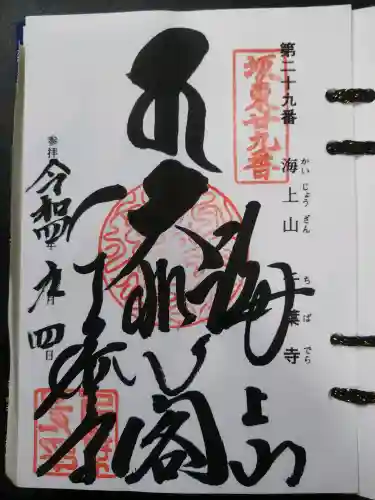 第二十九番 海上山 千葉寺
かいじょうざん ちばでら
坂東廿九番
海上山
大悲閣
千葉寺
参拝 令和四年 九月 四日